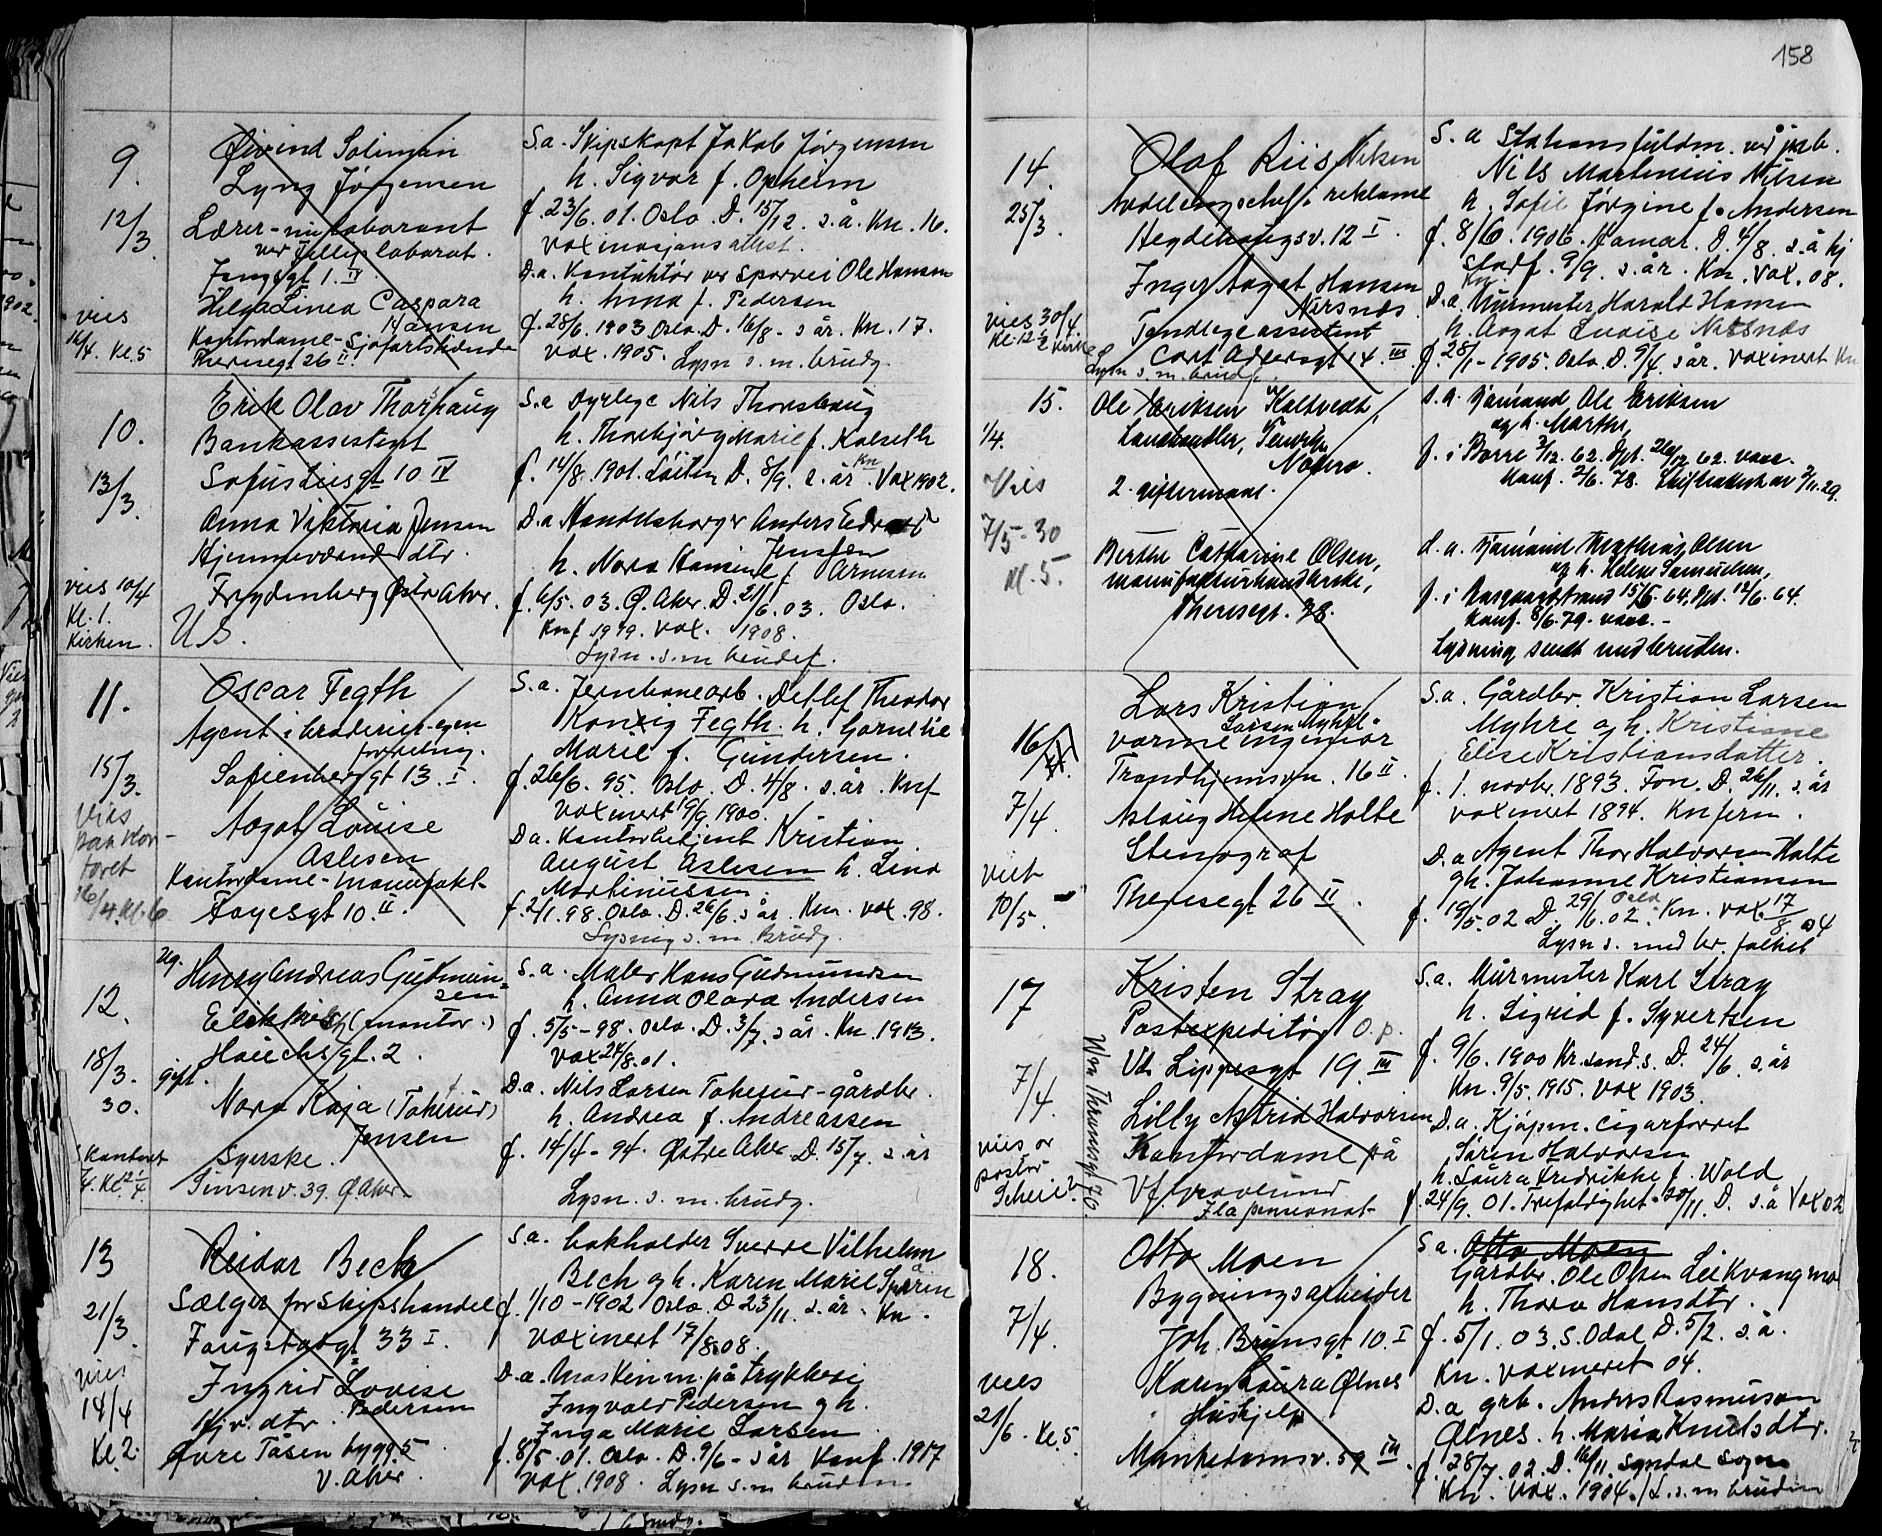 158
9.
12/3
vies
16/4. Kl. 5
Øivind Soliman
Lyng Jørgensen
Lærer - nu laborant
ver Jelleps laborat.
Jensgt 1. IV
Helga Linea Caspara
Hansen
Kontordame - Sjøfartstidende
Theresegt 26 II.
S.a. Skipskapt Jakob Jørgensen
h. Sigvor f. Opheim
f. 23/6. 01. Oslo. D. 15/12. s.å. Kn. 16.
Vaxinasjonsattest.
D.a. Konduktør ver sporvei Ole Hansen
h. Anna f. Pedersen
f. 28/6. 1903 Oslo. D. 16/8. s år. Kn. 17.
Vax. 1905. Lysn s. m. brudg.
10.
13/3.
vies 10/4
Kl. 1.
Kirken.
Erik Olav Thorhaug
Bankassistent
Sofus Liesgt 10 IV
Anna Viktoria Jensen
Hjemmeværende dtr.
Frydenberg Østre Aker.
U.S.
S.a Dyrlege Nils Thorshaug
h. Thorbjørg Marie f. Kolseth
f. 14/8. 1901. Løiten D. 8/9. s. år Kn Vax 1902.
D.a Handelsborger Anders Edvard
Jensen
h. Nora Hansine f. Arnesen
f. 6/5. 03. Ø. Aker. D. 21/6. 03. Oslo.
Knf 1919. Vax. 1908.
Lysn. s. m brudef.
11.
15/3.
Vies
paa Kon-
toret
16/4. Kl. 6
Oscar Fegth
Agent i broderier - egen
forretning.
Sofienberggt 13. I.
Aagot Louise
Aslesen
Kontordame - manufakt.
Fayesgt 10. II.
S.a. Jernbanearb. Detlef Theodor
Konzig Fegth. h. Cornelie
Marie f. Gundersen.
f. 26/6. 95. Oslo. D. 4/8. s. år. Knf
Vaxinert 19/9. 1900.
D.a. Kontorbetjent Kristian
August Aslesen h. Lina
Martinussen.
f. 2/1. 98. Oslo. D. 26/6. s år. Kn. vax. 98.
Lysning s. m. Brudg.
12.
18/3.
30.
s Kontoret
Henry Andreas Gudmun-
sen
Elektriker (montør.)
Hauchsgt. 2.
gift.
Nora Kaja (Tokerud)
Jensen
Syerske.
Sinsenv. 39. Ø Aker.
S.a. Maler Hans Gudmundsen
h. Anna Olava Andersen
f. 5/5 - 98. Oslo. D. 3/7. s år. Kn. 1913.
Vax 24/8. 01.
D.a. Nils Larsen Tokerud - gårdbr.
h. Andrea f. Andreassen
f. 14/4 - 94. Østre Aker D. 15/7. s. år
Lysn. s. m. brudg.
13
21/3.
vies
14/4
Kl. 2.
Reidar Bech
Sælger for skipshandel
Faugstadgt 33 I.
Ingrid Lovise
Pedersen
Hjv. dtr.
Øvre Tåsen bygg 5
V. Aker.
S.a. bokholder Sverre Vilhelm
Bech og h. Karen Marie
f. 1/10 - 1902 Oslo. D 23/11. s. år. Kn.
Vaxinert 17/8. 08.
D.a. Maskinm. på trykkeri
Ingvald Pedersen og h.
Inga Marie Larsen
f. 8/5. 01. Oslo. D. 9/6 - s år Konf. 1917
Vax. 1908. Lysn s. m bruden
14.
25/3.
vies 30/4.
Kl. 12 1/2 Kirke
Olaf Riis Nilsen
Avdelingschef i reklame
Hegdehaugsv. 12 I.
Inger Aagot Hansen
Nirsnæs
Tandlegeassistent
Cort Adlersgt 14. III
Lysn s. m. brudg.
S.a Stationsfuldm. ved jrnb.
Nils Martinius Nilsen
h. Sofie Jørgine f. Andersen
f. 8/6. 1906. Hamar. D. 4/8. s. å hj
Stadf. 9/9. s. år. Kn. Vax. 08.
D.a. Murmester Harald Hansen
h. Aagot Lovise Nilsnæs
f. 28/1 - 1905. Oslo. D. 9/4. s år. Vaxinert Kn
15.
1/4.
Vies
7/5 - 30
Kl. 5.
Ole Eriksen Holtvedt,
Landhandler,
Nøtterø.
2. giftermaal.
Berthe Catharine Olsen,
manufakturhandlerske,
Theresegt. 28.
s. a. Gaarmand Ole Eriksen
og h. Marthe,
f. i Borre 3/12. 62. Dpt. 26/12 62. vacc.
Konf. 2/6. 78. Skifteattest av 2/11. 29.
d. a. Gaarmand Mathias Olsen
og h. Helene Samuelsen,
f. i Aasgaardstrand 15/5. 64, Dpt. 12/6. 64.
Konf. 8/6. 79. vacc. -
Lysning sendt med bruden.
16
7/4.
viet
10/5.
Lars Kristian
Larsen Myhre.
varmeingeniør
Trondhjemsvn. 16 II.
Aslaug Helene Holte
Stenograf
Theresegt 26 II.
S.a. Gårdbr. Kristian Larsen
Myhre og h. Kristiane
Elise Kristiansdatter.
f. 1. novbr. 1893. Fon. D. 26/11. s. år
vaxinert 1894. Knferm.
D.a Agent Thor Halvorsen Holte
og h. Johanne Kristiansen
f. 19/5. 02 D. 29/6. 02. Oslo. Kn. vax 17/8 04
Lysn s. med br. folket
17
7/4.
vies av
pastor
Kristen Stray
Postexpeditør O.p.
Vth Lippesgt 19. III
Wm Thranesgt 70.
Lilly Astrid Halvorsen
Kontordame på
Ila pensionat
S.a. Murmester Karl Stray
h. Sigrid f. Syvertsen
f. 9/6. 1900 Kr.sand. s. D. 24/6. s. år
Kn. 9/5. 1915. Vax 1903.
D.a. Kjøpm. cigarforret
Søren Halvorsen
h. Laura Fredrikke f. Wold
f. 24/9. 01. Trefoldighet. 20/11. D. s. å Vax 02
18.
7/4.
vies
21/6. Kl. 5
Otto Moen
Bygningsarbeider
Joh. Brunsgt. 10. I
Karen Laura Ølnes
Hushjelp
Munkedamsv. 59 III.
S.a. Otto Moen
Gårdbr. Ole Olsen Lie Kvangmo
h. Thora Hansdtr.
f. 5/1. 03. S. Odal D. 5/2. s. å.
Kn. vaxineret 04.
D.a grb. Anders Rasmussen
Ølnes. h. Maria Knutsdtr.
f. 28/7. 02. D. 16/11. Syndal Sogn
Kn. Vax. 1904. / L. s. m bruden